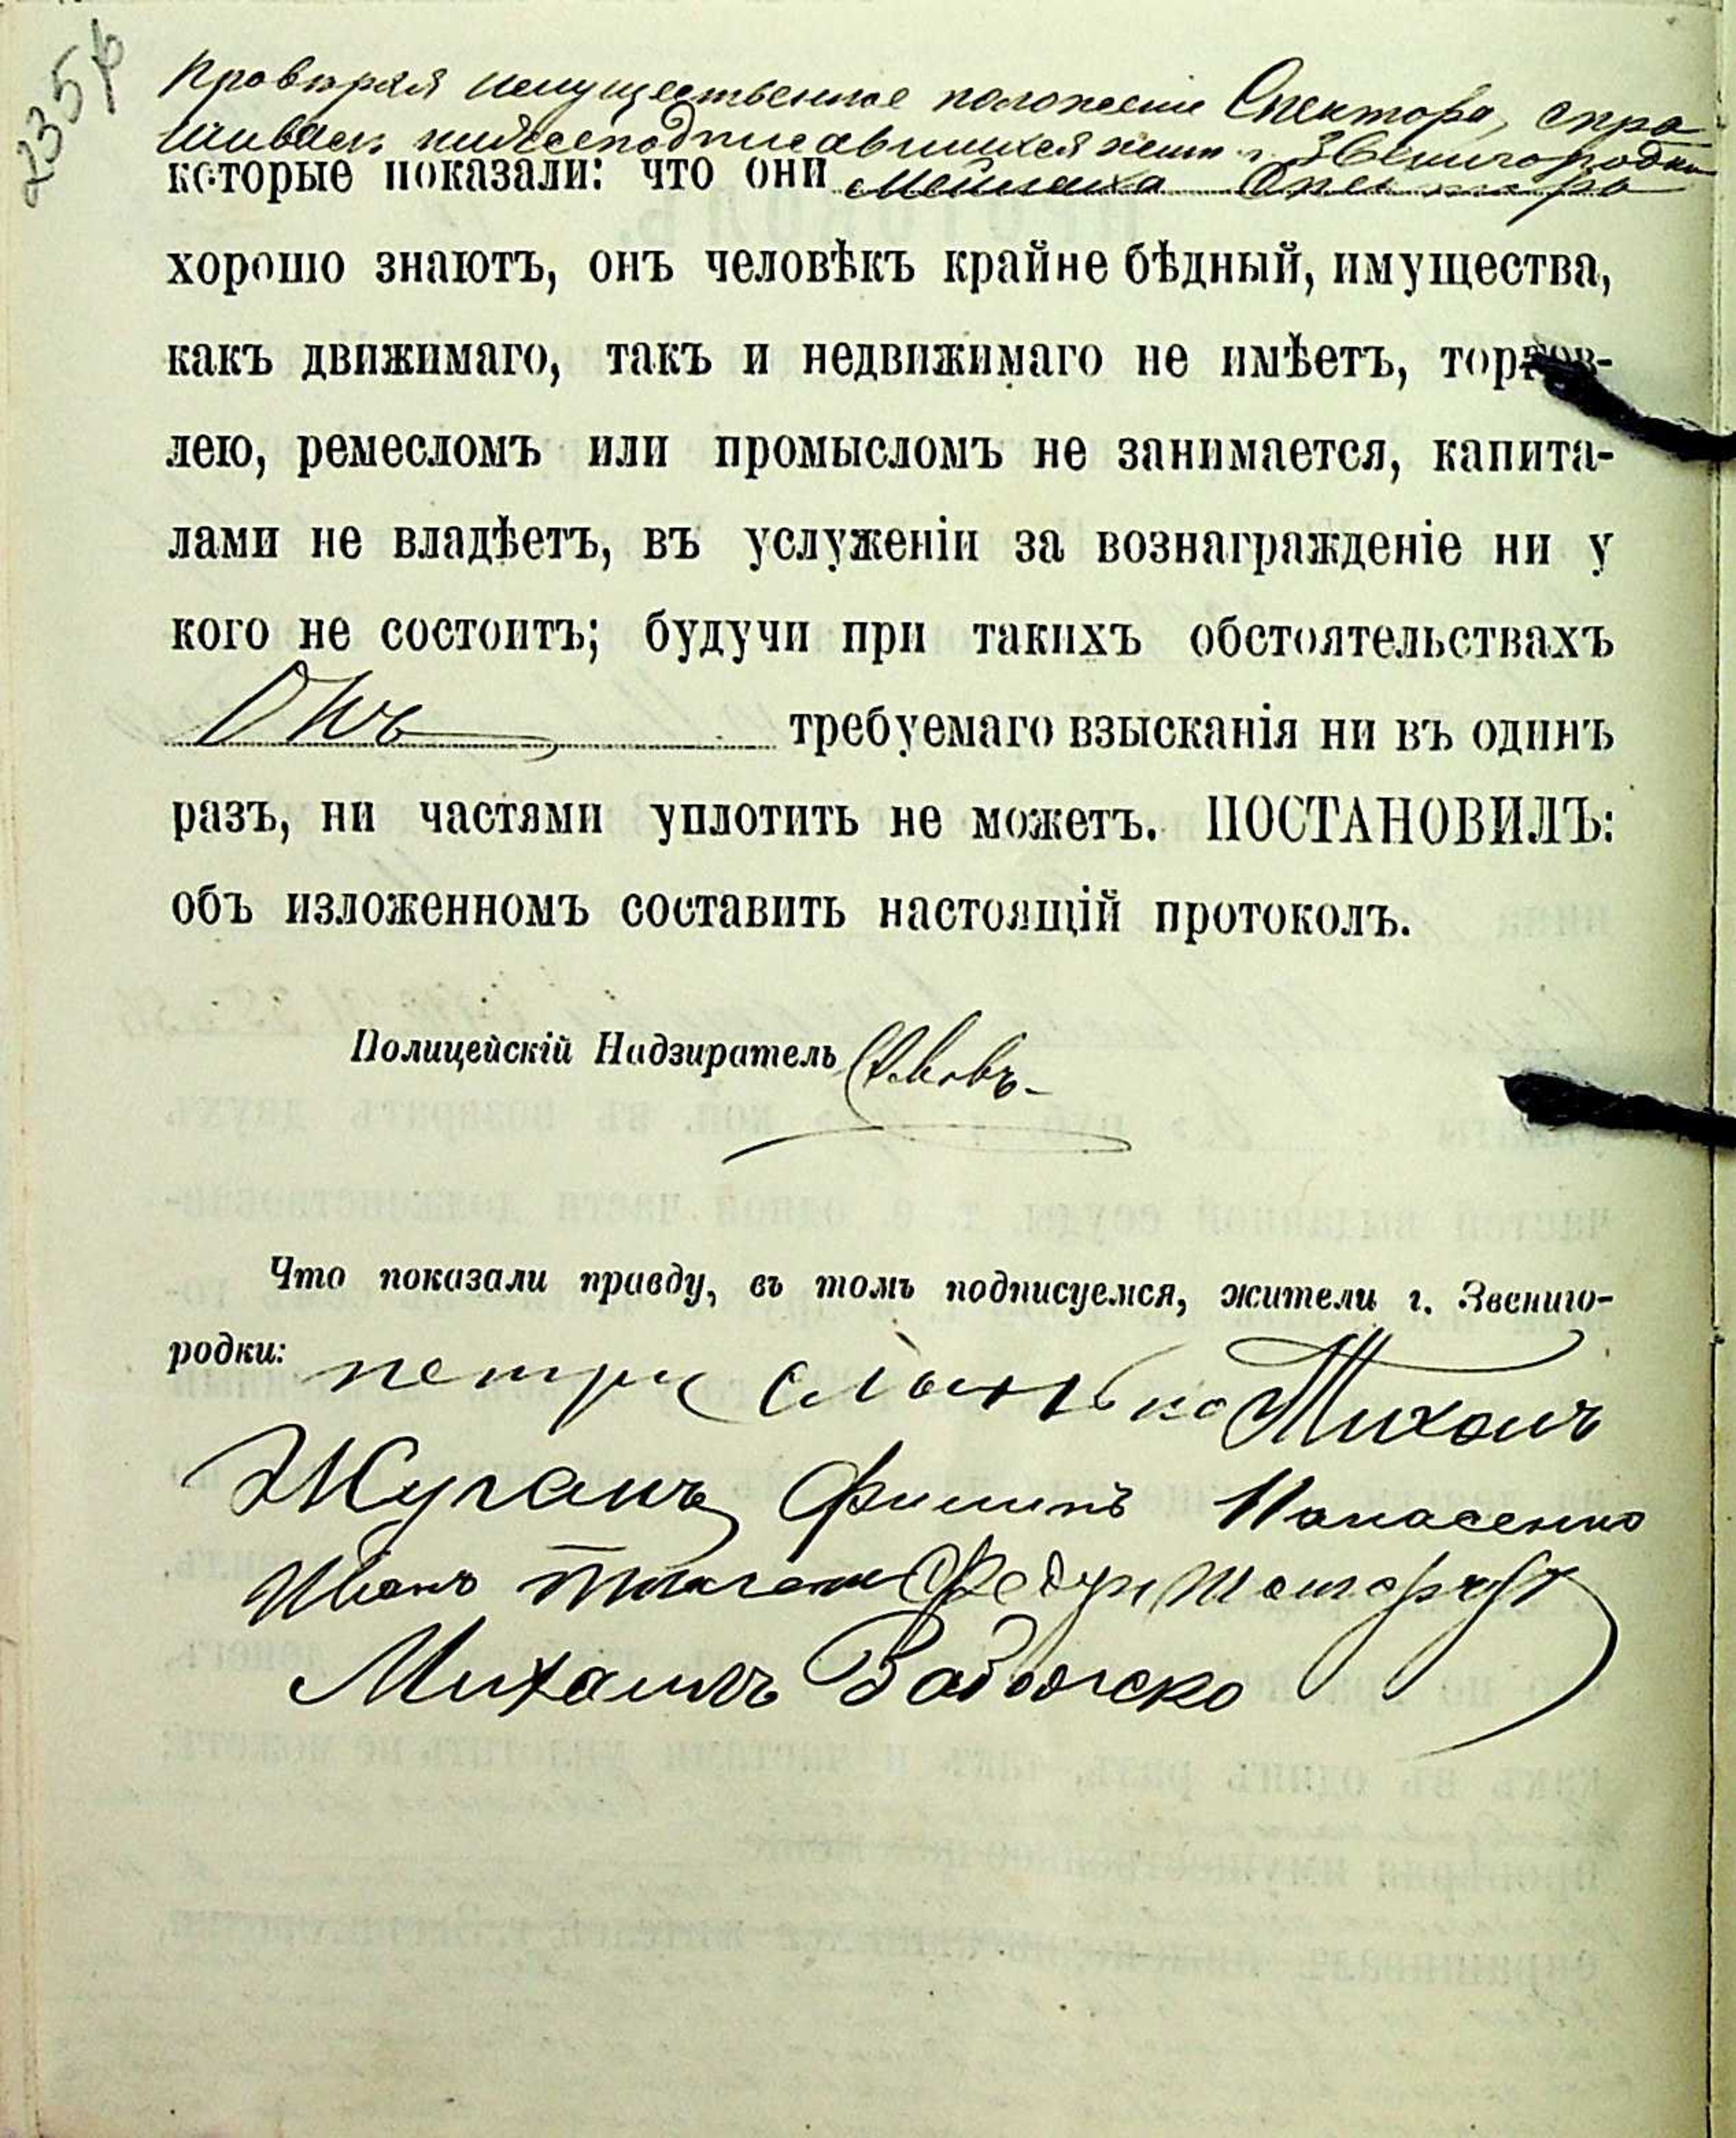 235 ф
Провѣряя имущественное положеніе Спектора, спра
шивалъ нижеподписавшихся жит. г. Звенигородки
которые показали: что они Мейлаха Спектора
хорошо знаютъ, онъ человѣкъ крайне бѣдный, имущества,
какъ движимаго, такъ и недвижимаго не имѣетъ, торгов-
лею, ремесломъ или промысломъ не занимается, капита-
лами не владѣетъ, въ услуженіи за вознагражденіе ни у
кого не состоитъ; будучи при такихъ обстоятельствахъ
Онъ требуемаго взысканія ни въ одинъ
разъ, ни частями уплотить не можетъ. ПОСТАНОВИЛЪ:
объ изложенномъ составить настоящій протоколъ.
Полицейскій Надзиратель
Что показали правду, въ томъ подписуемся, жители г. Звениго-
родки: петри Тихонъ
Жуганъ Филипъ Панасенко
Иванъ Федир
Михаилъ